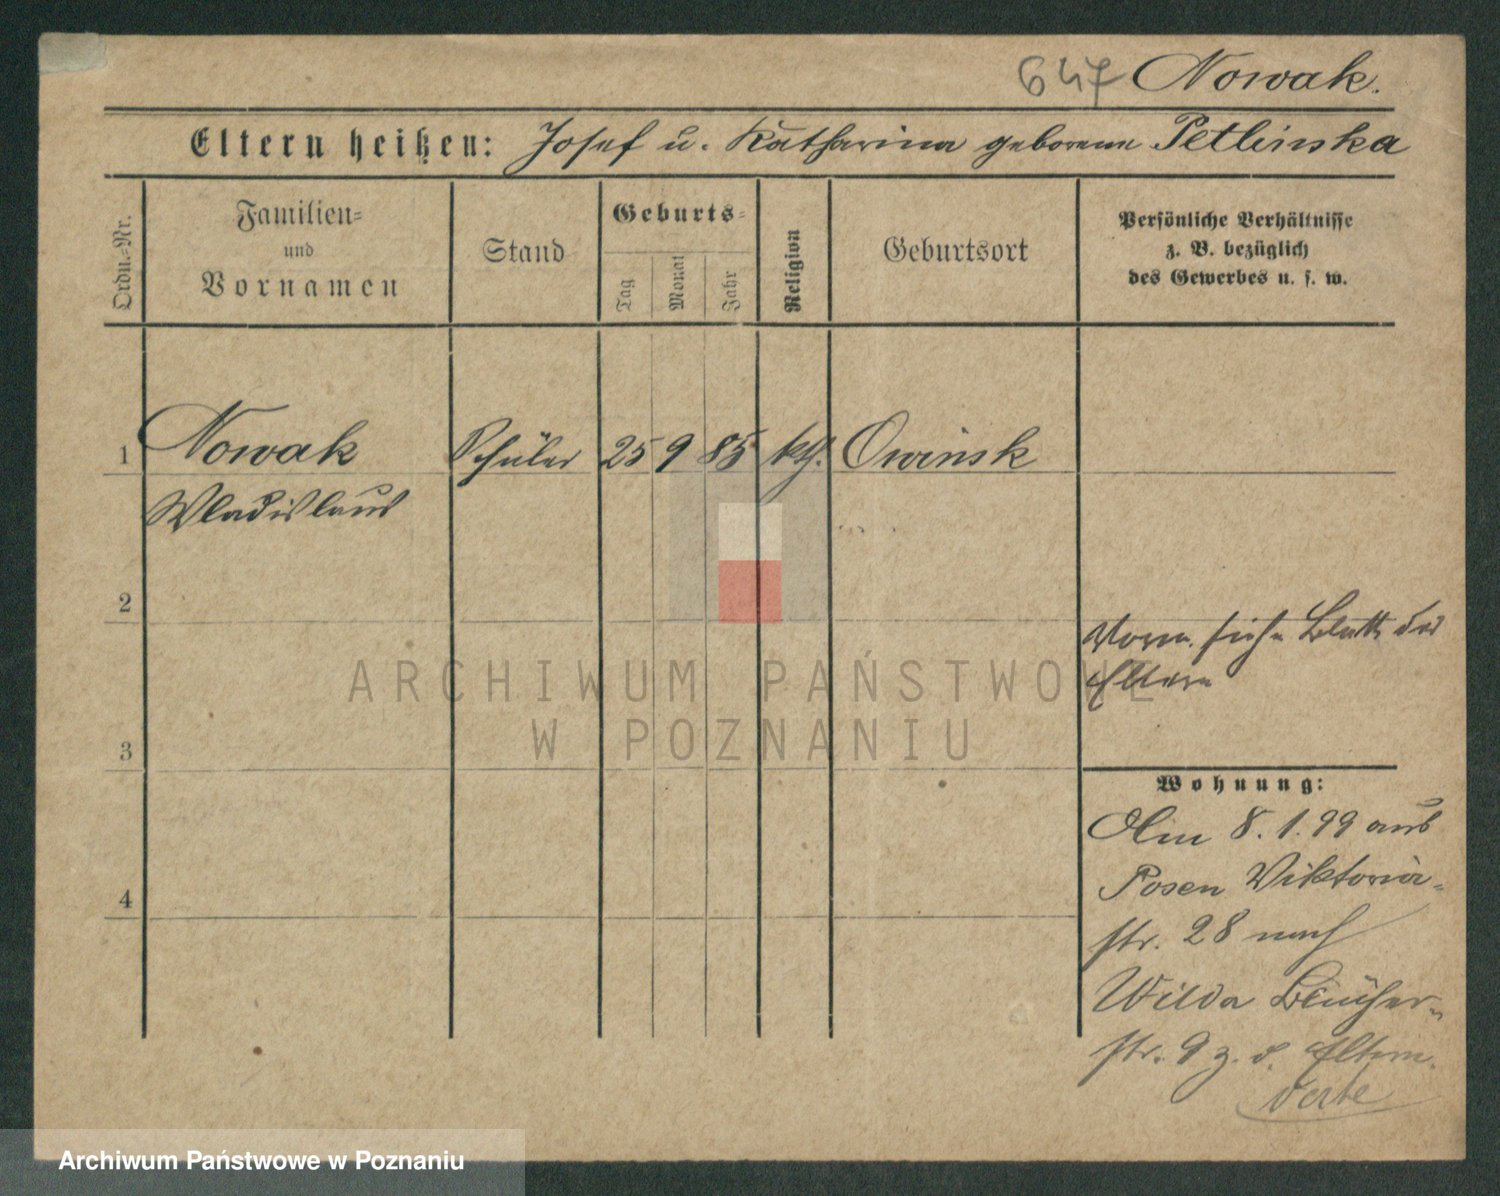 647 Nowak.
Eltern heißen: Josef u. Katharina geborene Petlinska
Ordn.-Nr.
Familien-
und
Vornamen
Stand
Geburts-
Tag
Monat
Jahr
Religion
Geburtsort
Persönliche Verhältnisse
z. B. bezüglich
des Gewerbes u. s. w.
1 Nowak Schüler 25 9 85 kth. Owinsk
Wladislaus
2
Vorm. siehe Blatt der
Eltern
ARCHIWUM PAŃSTWOWE
W POZNANIU
3
Wohnung:
Am 8.1.99 aus
Posen Viktoria-
str. 28 nach
4
Wilda Blücher-
str. 9 z. d. Eltern.
Archiwum Państwowe w Poznaniu